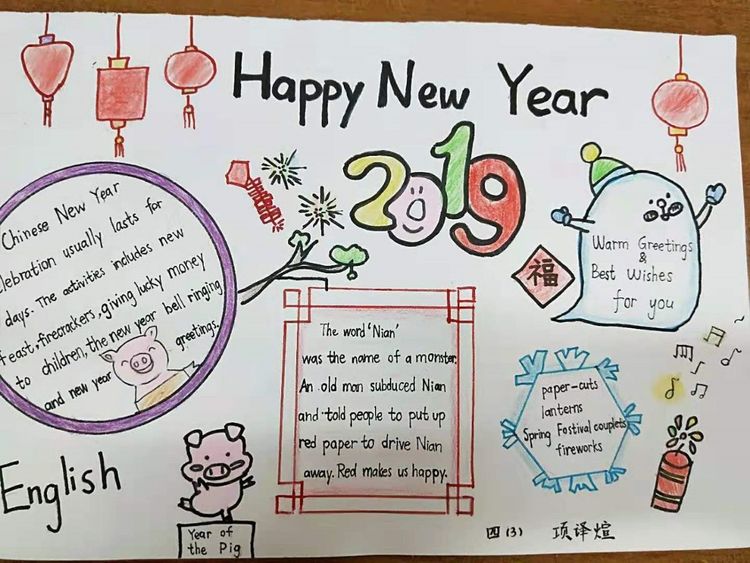 Happy New Year
2019
Chinese New Year
celebration usually lasts for
days. The activities includes new
feast, firecrackers, giving lucky money
to children, the new year bell ringing
and new year greetings.
福
Warm Greetings
&
Best Wishes
for you
The word 'Nian'
was the name of a monster.
An old man subduced Nian
and told people to put up
red paper to drive Nian
away. Red makes us happy.
paper-cuts
lanterns
Spring Festival couplets
fireworks
English
Year of
the Pig
四(3) 项译煊